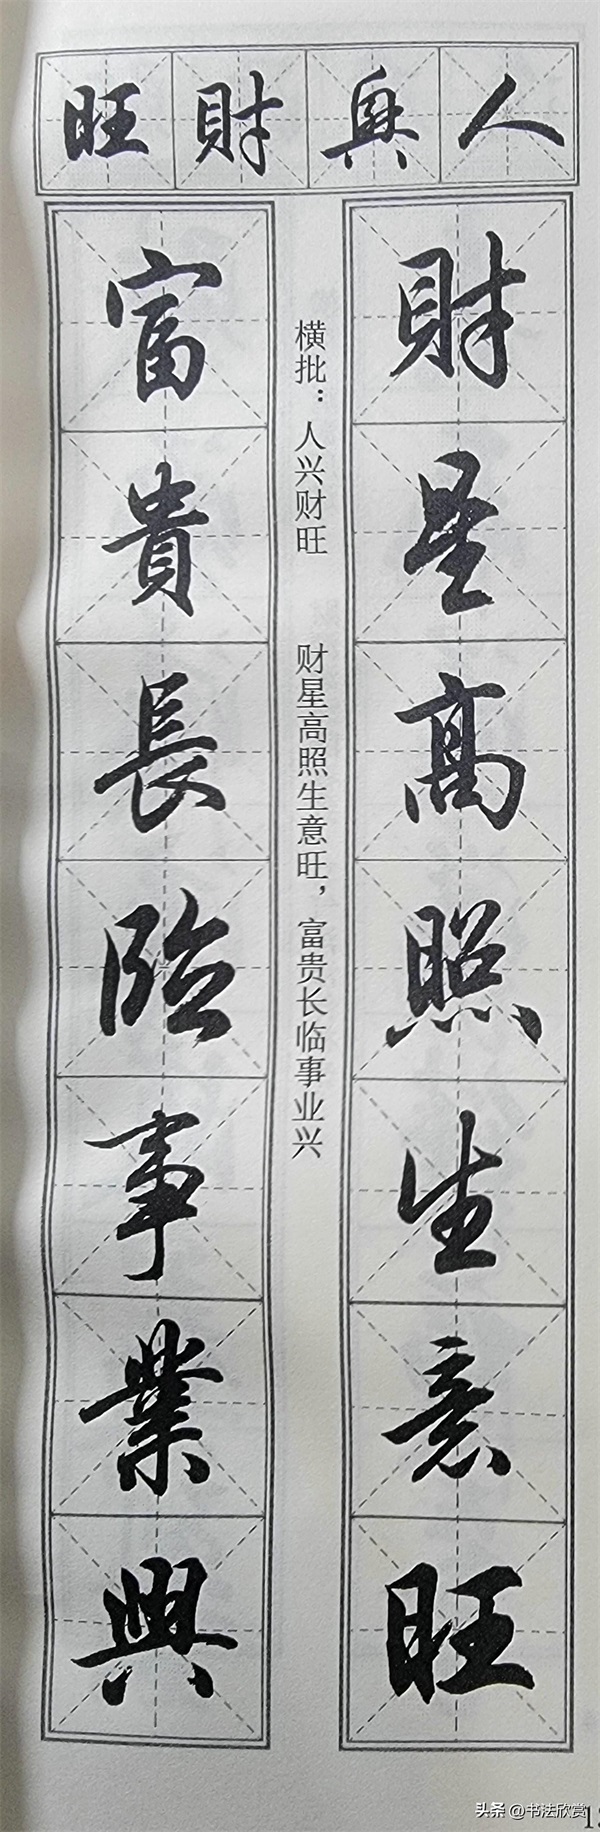 人興財旺
財星髙照生意旺
横批：人兴财旺 财星高照生意旺，富贵长临事业兴
富貴長臨事業興
头条 @书法欣赏